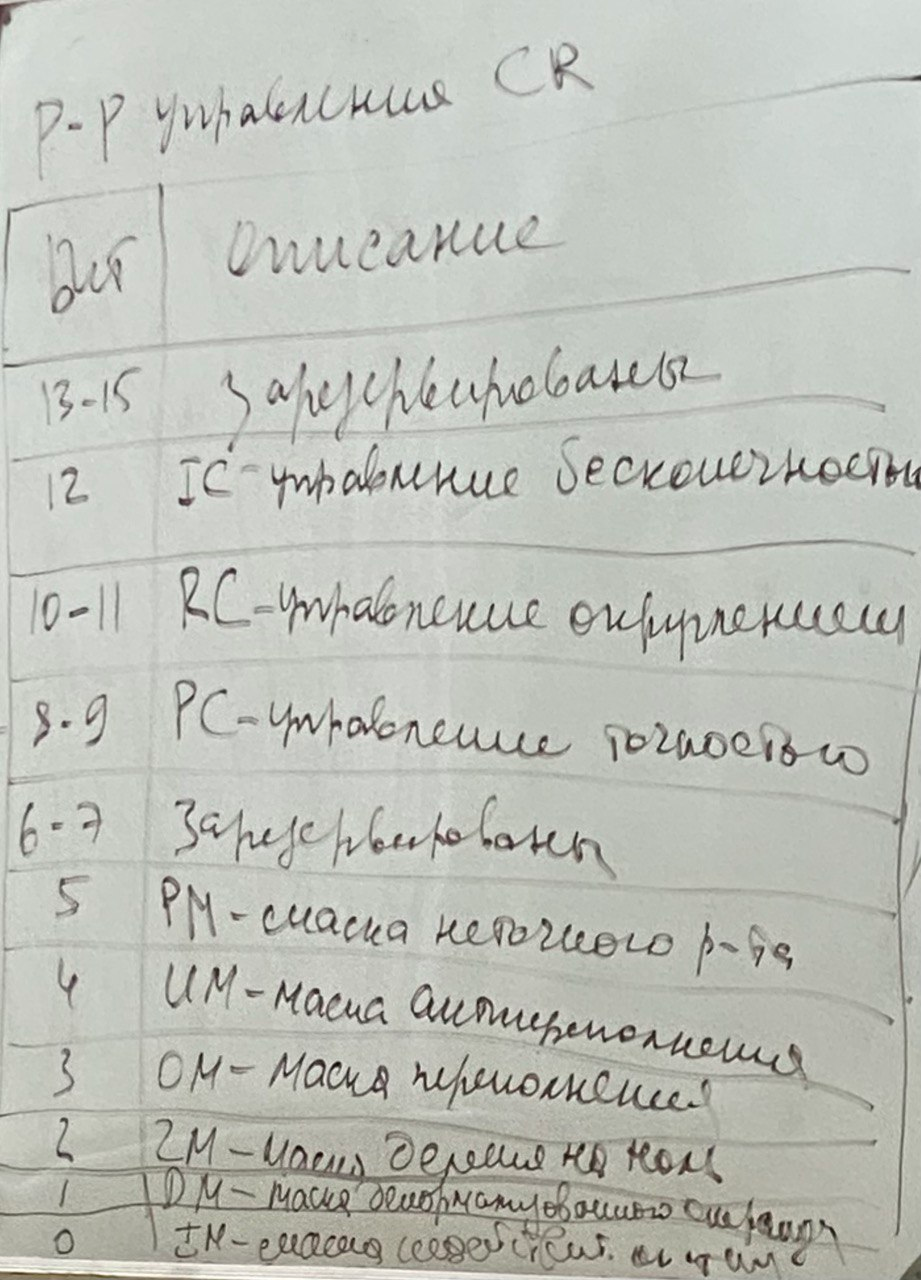 Р-р управления CR
Бит Описание
13-15 Зарезервированы
12 IC-управление бесконечностью
10-11 RC-управление округлением
8-9 PC-управление точностью
6-7 Зарезервированы
5 PM-маска неточного р-та
4 UM-маска антипереполнения
3 OM-маска переполнения
2 ZM-маска деления на ноль
1 DM-маска денормализованного операнда
0 IM-маска недействит.